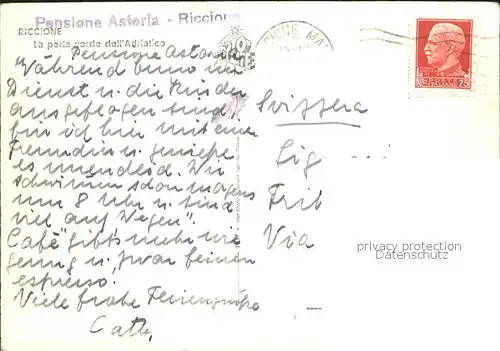 Pensione Astoria - Riccione
RICCIONE
La perla verde dell'Adriatico
Pensione Astoria
Während Benno im
Dienst u. die Kinder
ausgeflogen sind,
bin ich hier mit einer
Freundin u. genieße
es unendlich. Wir
schwimmen schon morgens
um 8 Uhr u. sind
viel auf Wegen".
Café "gibt's mehr wie
genug u. zwar feinen
espresso.
Viele frohe Feriengrüße
Svizzera
Sig
Frib
Via
75
privacy protection
Datenschutz